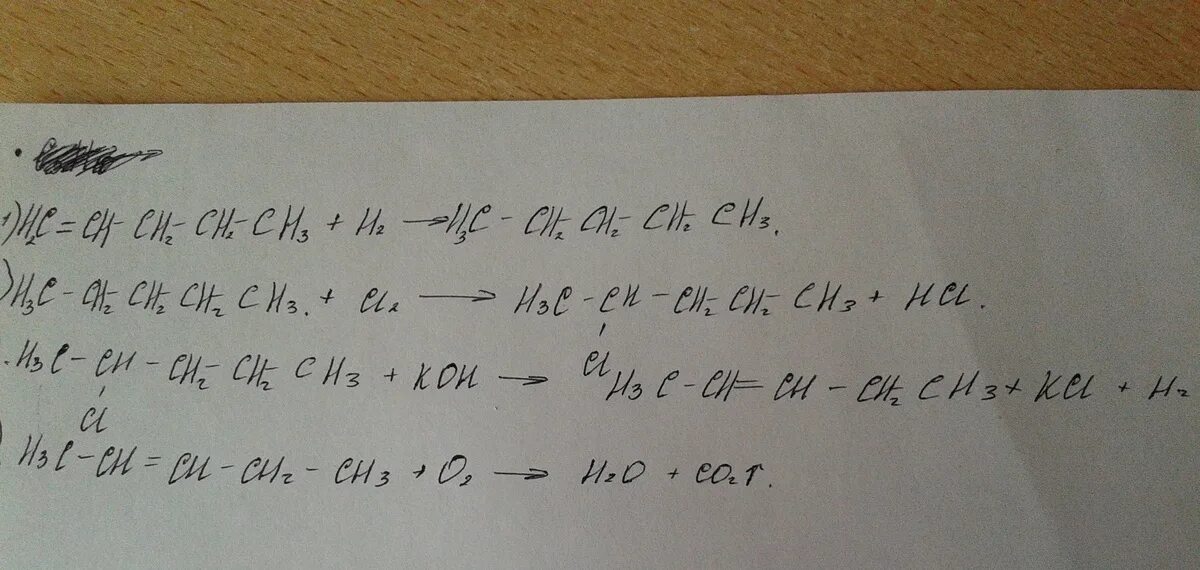 1) H₂C = CH - CH₂ - CH₂ - CH₃ + H₂ → H₃C - CH₂ - CH₂ - CH₂ CH₃.
) H₃C - CH₂ - CH₂ CH₂ CH₃. + Cl₂ → H₃C - CH - CH₂ - CH₂ - CH₃ + HCl.
Cl
. H₃C - CH - CH₂ - CH₂ CH₃ + KOH → H₃C - CH = CH - CH₂ CH₃ + KCl + H₂
Cl
) H₃C - CH = CH - CH₂ - CH₃ + O₂ → H₂O + CO₂↑.